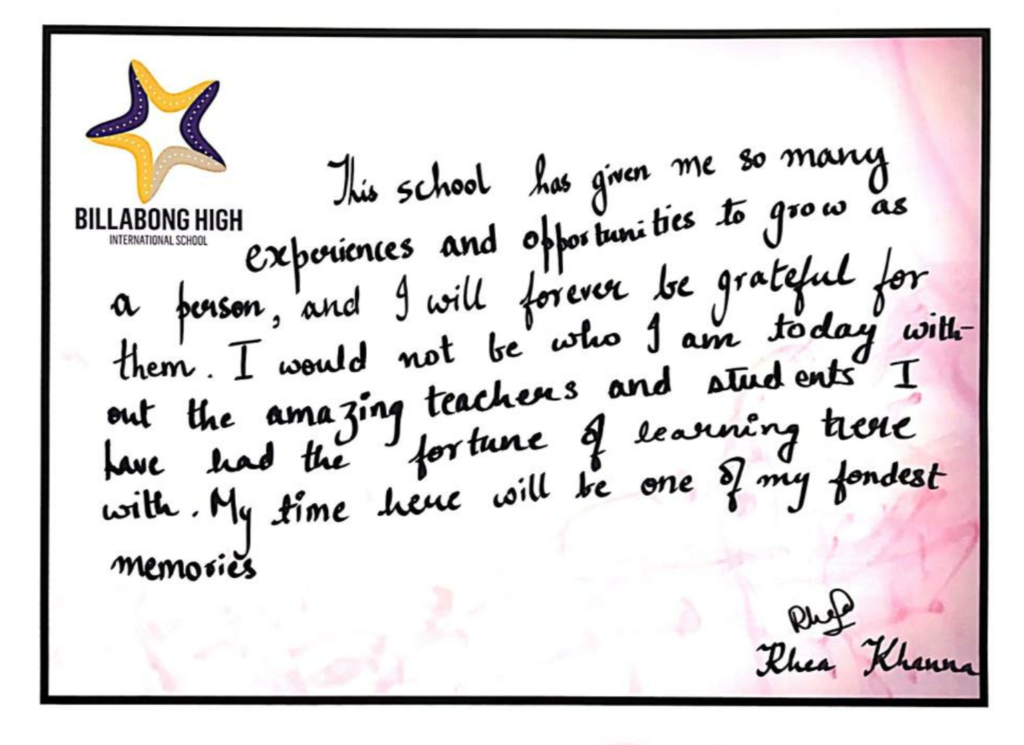 BILLABONG HIGH
INTERNATIONAL SCHOOL
This school has given me so many
experiences and opportunities to grow as
a person, and I will forever be grateful for
them. I would not be who I am today with-
out the amazing teachers and students I
have had the fortune of learning here
with. My time here will be one of my fondest
memories
Rhea
Rhea Khanna